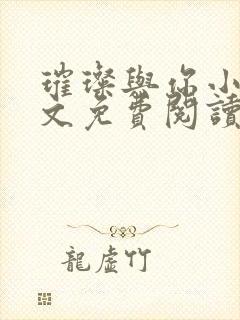 璀璨與你小
文免費閱讀
龍虛竹